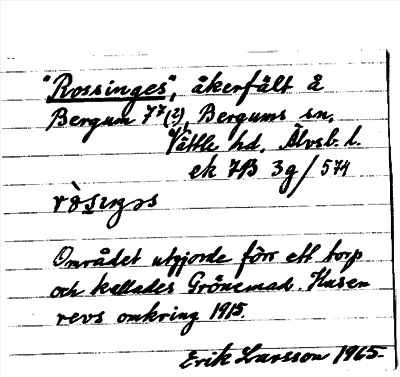 "Rossinges", åkerfält å
Bergum 7⁷(2), Bergums sn,
Vättle hd, Älvsb. l.
ek 7B 3g/574
Området utgjorde förr ett torp
och kallades Grönemad. Husen
revs omkring 1915.
Erik Larsson 1965.